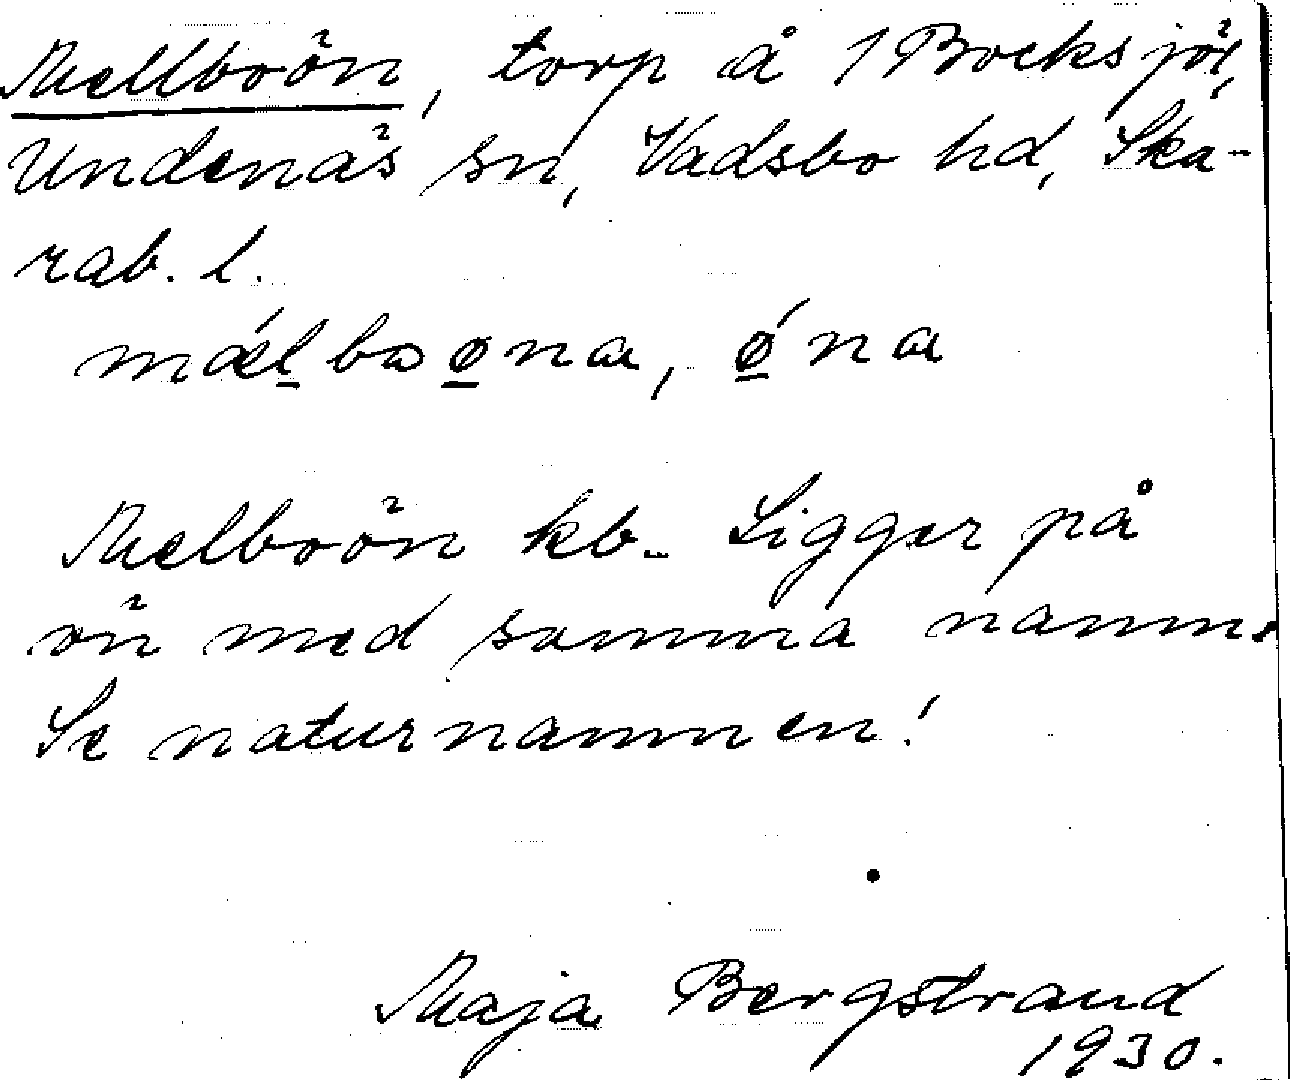 Mellboön, torp å 1 Bocksjö,
Undenäs sn, Vadsbo hd, Ska-
rab. l.
mǽl̲boø̲na, ǿ̲na
Melboön kb. Ligger på
ön med samma namn.
Se naturnamnen!
Maja Bergstrand
1930.